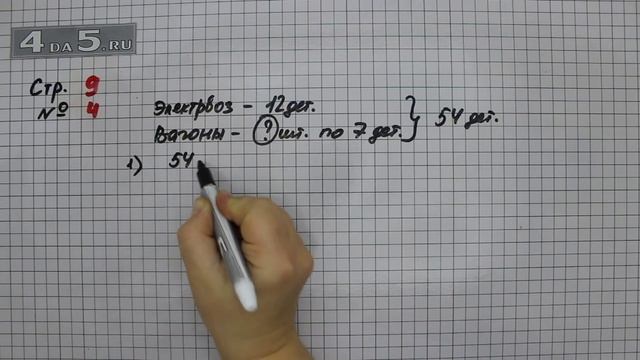 4DA5.RU
Стр. 9
№ 4
Электрвоз - 12 дет.
Вагоны - ? шт. по 7 дет. } 54 дет.
1) 54